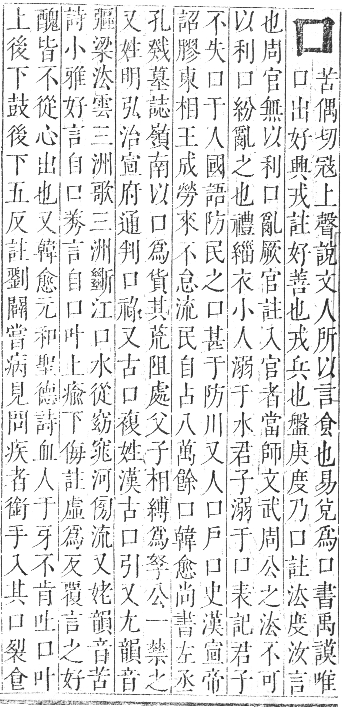 口
苦偶切𡨥上聲說文人所以言食也易兌為口書禹謨唯
口出好興戎註好善也戎兵也盤庚度乃口註法度汝言
也周官無以利口亂厥官註入官者當師文武周公之法不可
以利口紛亂之也禮緇衣小人溺于水君子溺于口表記君子
不失口于人國語防民之口甚于防川又人口戶口史漢宣帝
詔膠東相王成勞來不怠流民自占八萬餘口韓愈尚書左丞
孔戣墓誌嶺南以口為貨其荒阻處父子相縛為孥公一禁之
又姓明弘治宣府通判口祿又古口複姓漢古口引又尤韻音
彄梁沈雲三洲歌三洲斷江口水從窈窕河傍流又姥韻音苦
詩小雅好言自口莠言自口叶上瘉下侮註虛為反覆言之好
醜皆不從心出也又韓愈元和聖德詩血人于牙不肯吐口叶
上後下鼓後下五反註劉闢嘗病見問疾者銜手入其口裂食